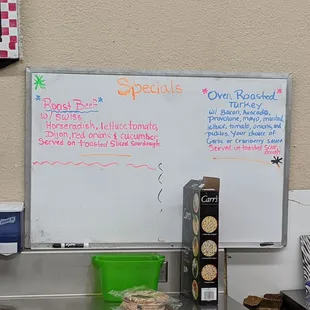 Specials
"Roast Beef"
w/ swiss
Horseradish, lettuce, tomato,
Dijon, red onions & cucumber,
Served on toasted sliced sourdough
"Oven Roasted
Turkey
w/ Bacon, avocado,
provolone, mayo, mustard,
lettuce, tomato, onions, and
pickles. Your choice of
Garlic or cranberry sauce
Served on toasted sour
dough
Carr's
EXPO